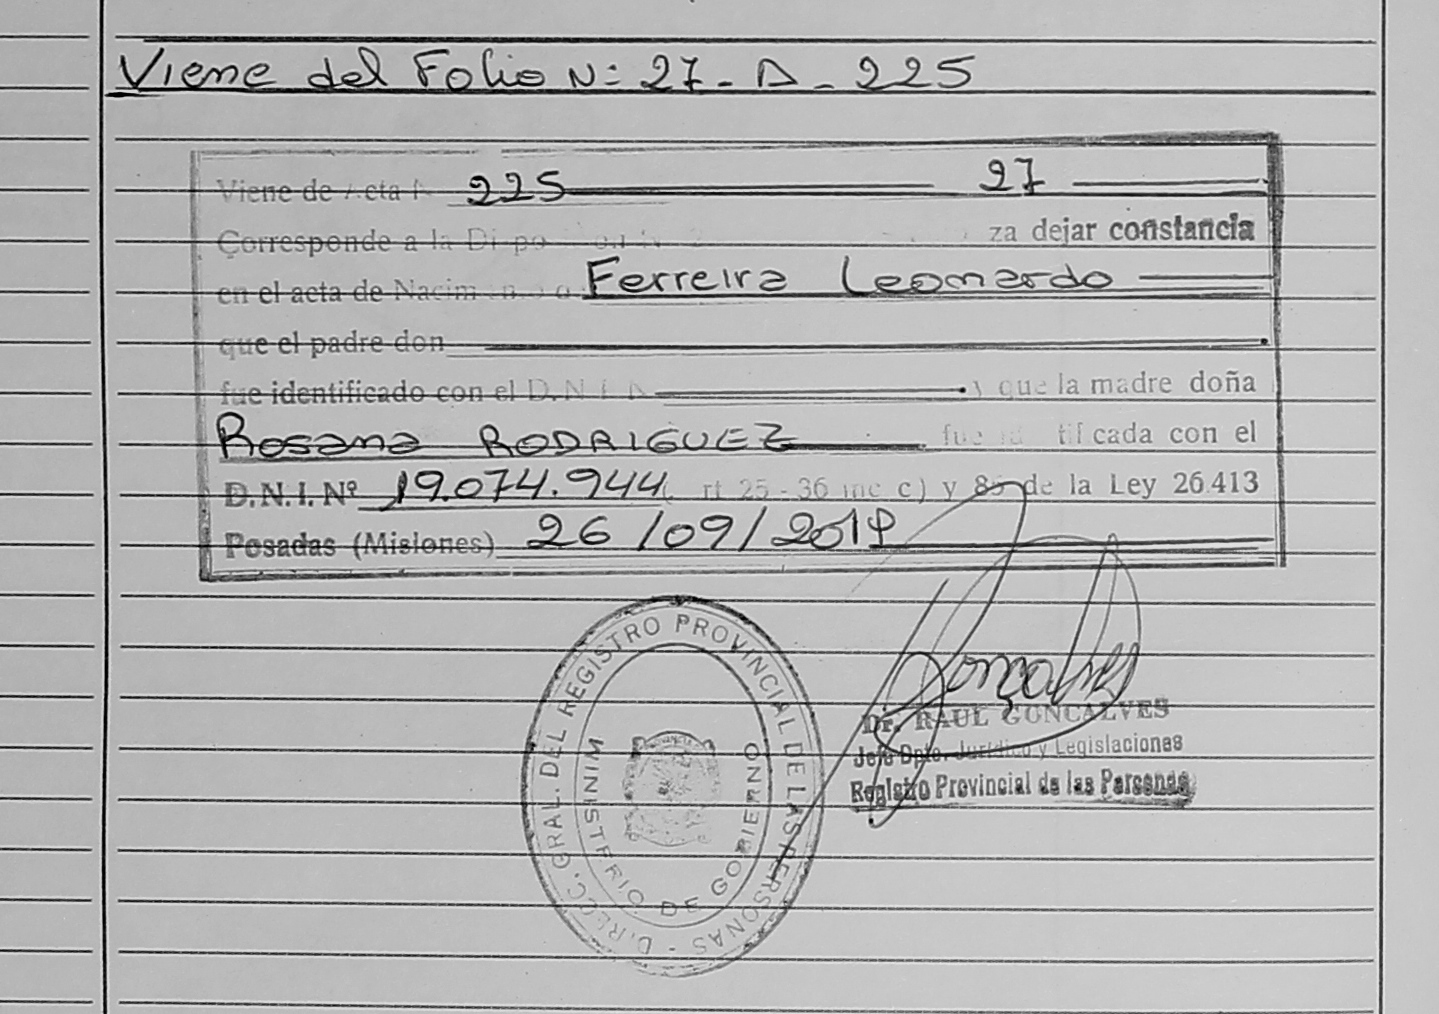 Viene del Folio N: 27 - A - 225
Viene de Acta N 225 27
Corresponde a la za dejar constancia
en el acta de Ferreira Leonardo
que el padre don
fue identificado con el D.N.I. y que la madre doña
Rosana RODRIGUEZ cada con el
D.N.I. Nº 19.074.944 25 - 36 inc c) y 85 de la Ley 26.413
Posadas (Misiones) 26/09/2019
DIRECC. GRAL. DEL REGISTRO PROVINCIAL DE LAS PERSONAS -
MINISTERIO DE GOBIERNO
Dr. RAUL GONCALVES
Jefe Dpto. Jurídico y Legislaciones
Registro Provincial de las Personas